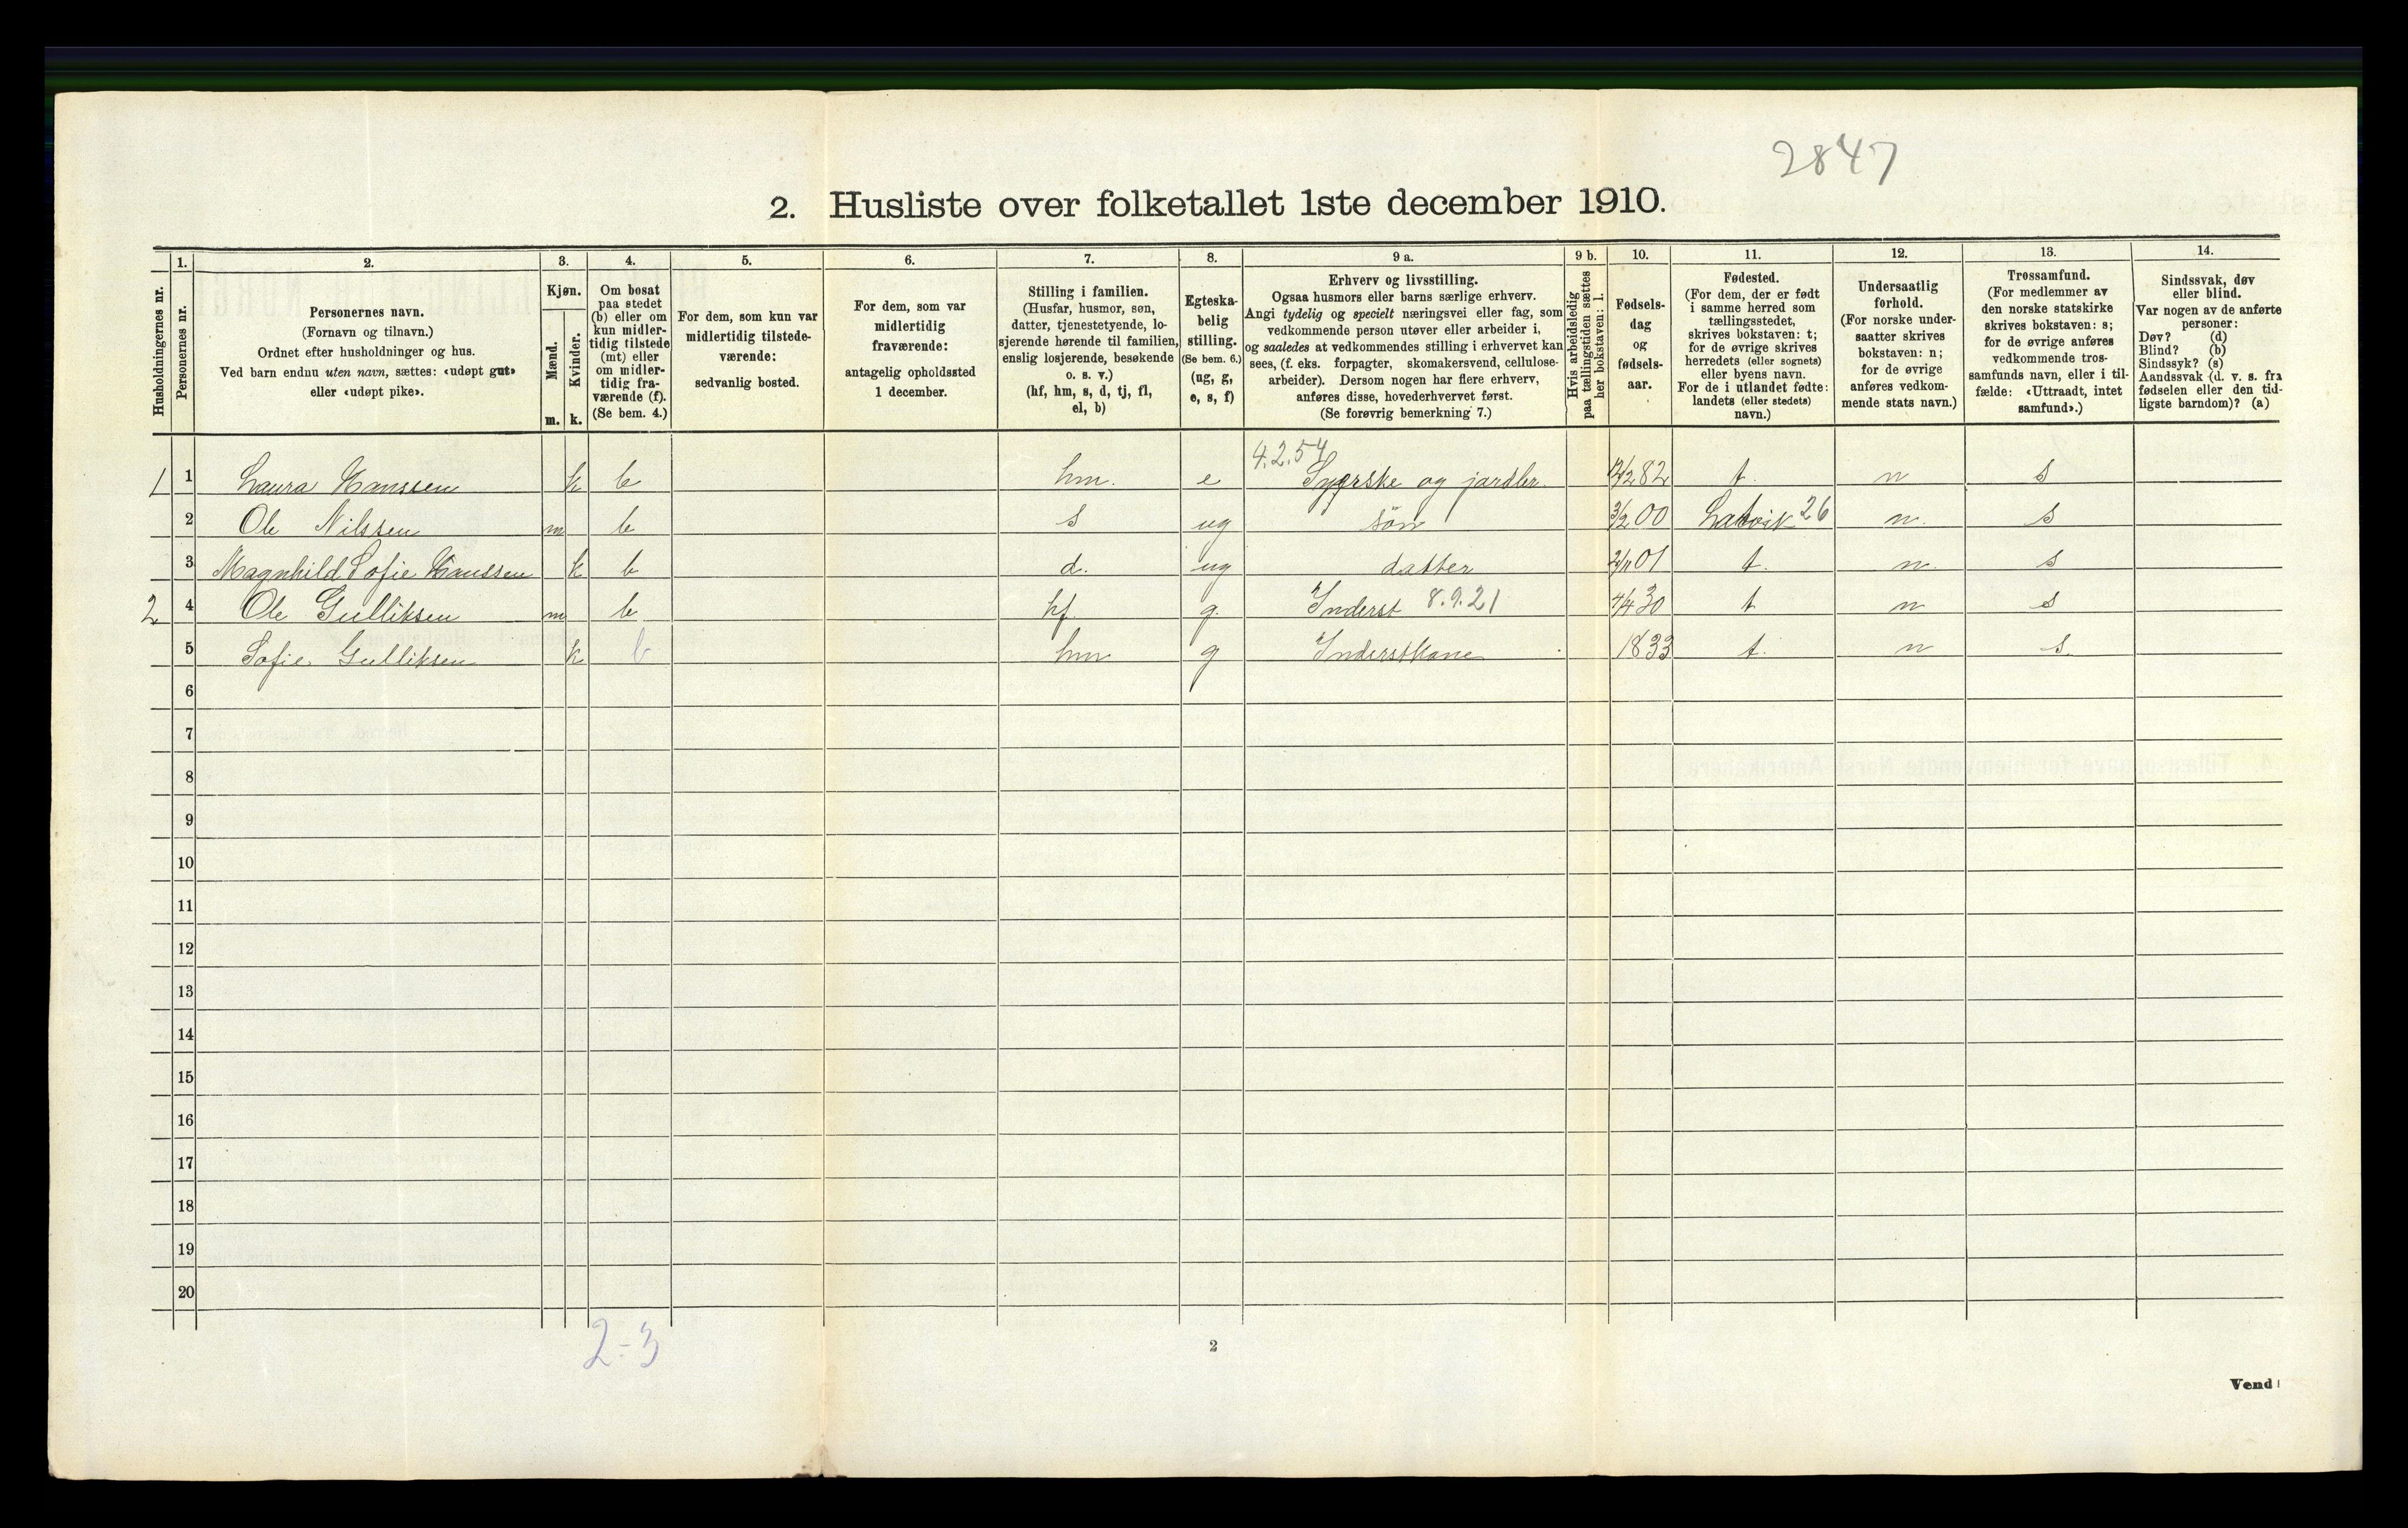 2847
2. Husliste over folketallet 1ste december 1910.
Husholdningernes nr.
1. Personernes nr.
2.
Personernes navn.
(Fornavn og tilnavn.)
Ordnet efter husholdninger og hus.
Ved barn endnu uten navn, sættes: «udøpt gut»
eller «udøpt pike».
3.
Kjøn.
Mænd. Kvinder.
m. k.
4.
Om bosat
paa stedet
(b) eller om
kun midler-
tidig tilstede
(mt) eller
om midler-
tidig fra-
værende (f).
(Se bem. 4.)
5.
For dem, som kun var
midlertidig tilstede-
værende:
sedvanlig bosted.
6.
For dem, som var
midlertidig
fraværende:
antagelig opholdssted
1 december.
7.
Stilling i familien.
(Husfar, husmor, søn,
datter, tjenestetyende, lo-
sjerende hørende til familien,
enslig losjerende, besøkende
o. s. v.)
(hf, hm, s, d, tj, fl,
el, b)
8.
Egteska-
belig
stilling.
(Se bem. 6.)
(ug, g,
e, s, f)
9 a.
Erhverv og livsstilling.
Ogsaa husmors eller barns særlige erhverv.
Angi tydelig og specielt næringsvei eller fag, som
vedkommende person utøver eller arbeider i,
og saaledes at vedkommendes stilling i erhvervet kan
sees, (f. eks. forpagter, skomakersvend, cellulose-
arbeider). Dersom nogen har flere erhverv,
anføres disse, hovederhvervet først.
(Se forøvrig bemerkning 7.)
9 b.
Hvis arbeidsledig
paa tællingstiden sættes
her bokstaven: l.
10.
Fødsels-
dag
og
fødsels-
aar.
11.
Fødested.
(For dem, der er født
i samme herred som
tællingsstedet,
skrives bokstaven: t;
for de øvrige skrives
herredets (eller sognets)
eller byens navn.
For de i utlandet fødte:
landets (eller stedets)
navn.)
12.
Undersaatlig
forhold.
(For norske under-
saatter skrives
bokstaven: n;
for de øvrige
anføres vedkom-
mende stats navn.)
13.
Trossamfund.
(For medlemmer av
den norske statskirke
skrives bokstaven: s;
for de øvrige anføres
vedkommende tros-
samfunds navn, eller i til-
fælde: «Uttraadt, intet
samfund».)
14.
Sindssvak, døv
eller blind.
Var nogen av de anførte
personer:
Døv? (d)
Blind? (b)
Sindssyk? (s)
Aandssvak (d. v. s. fra
fødselen eller den tid-
ligste barndom)? (a)
4.2.54
1 1 Laura Hanssen k b hm. e Syerske og jordbr. 12/2 82 t. n s
2 Ole Nilssen m b s ug søn 3/2 00 26 n. s
3 Magnhild Sofie Hanssen k b d. ug datter 01 t. n. s
2 4 Ole Gulliksen m b hf g. Inderst 8.9.21 4/4 30 t n s
5 Sofie Gulliksen k b hm g Inderstkone 1833 t. n s.
6
7
8
9
10
11
12
13
14
15
16
17
18
19
20
2-3
2
Vend!